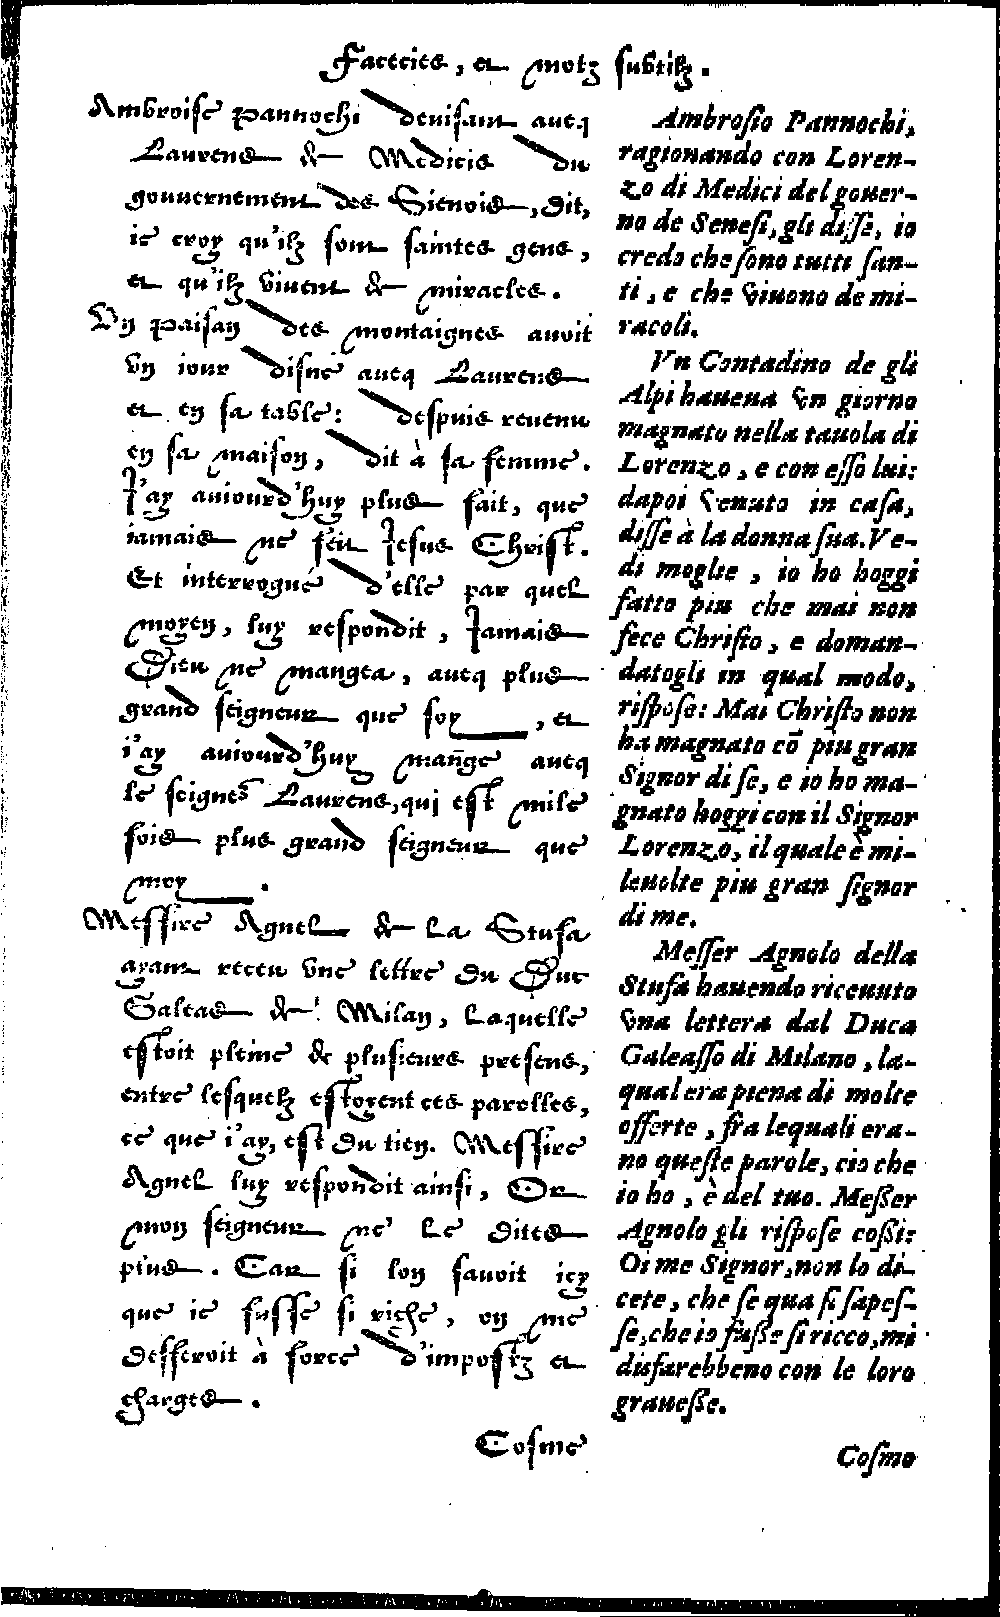 Facecies, et motz subtilz.
Ambroise Pannochi devisant avecq
Laurens de Medicis du
gouvernement des Sienois, dit,
ie croy qu'ilz sont saintes gens,
et qu'ilz vivent de miracles.
Un paisan des montaignes avoit
un iour disné avecq Laurens
et en sa table: despuis revenu
en sa maison, dit à sa femme.
J'ay auiourd'huy plus fait, que
iamais ne feit Jesus Christ.
Et interrogué d'elle par quel
moyen, luy respondit, Jamais
Dieu ne mangea, avecq plus
grand seigneur que soy, et
i'ay auiourd'huy mañge avecq
le seigneʳ Laurens, qui est mile
fois plus grand seigneur que
moy.
Messire Agnel de La Stufa
ayant receu une lettre du Duc
Galeas de Milan, Laquelle
estoit pleine de plusieurs presens,
entre lesquelz estoyent ces parolles,
ce que i'ay, est du tien. Messire
Agnel luy respondit ainsi, Or
mon seigneur ne Le dites
plus. Car si lon savoit icy
que ie fusse si riche, on me
defferoit à force d'impostz et
charges.
Cosme
Ambrosio Pannochi,
ragionando con Loren-
zo di Medici del gouer-
no de Senesi, gli disse, io
credo che sono tutti san-
ti, e che viuono de mi-
racoli.
Vn Contadino de gli
Alpi haueua vn giorno
magnato nella tauola di
Lorenzo, e con esso lui:
dapoi venuto in casa,
disse à la donna sua. Ve-
di moglie, io ho hoggi
fatto piu che mai non
fece Christo, e doman-
datogli in qual modo,
rispose: Mai Christo non
ha magnato cō piu gran
Signor di se, e io ho ma-
gnato hoggi con il Signor
Lorenzo, il quale è mi-
leuolte piu gran signor
di me.
Messer Agnolo della
Stufa hauendo riceuuto
vna lettera dal Duca
Galeasso di Milano, la-
qual era piena di molte
offerte, fra lequali era-
no queste parole, cio che
io ho, è del tuo. Messer
Agnolo gli rispose cossi:
Oime Signor, non lo di-
cete, che se qua si sapes-
se, che io fusse si ricco, mi
disfarebbeno con le loro
grauesse.
Cosmo